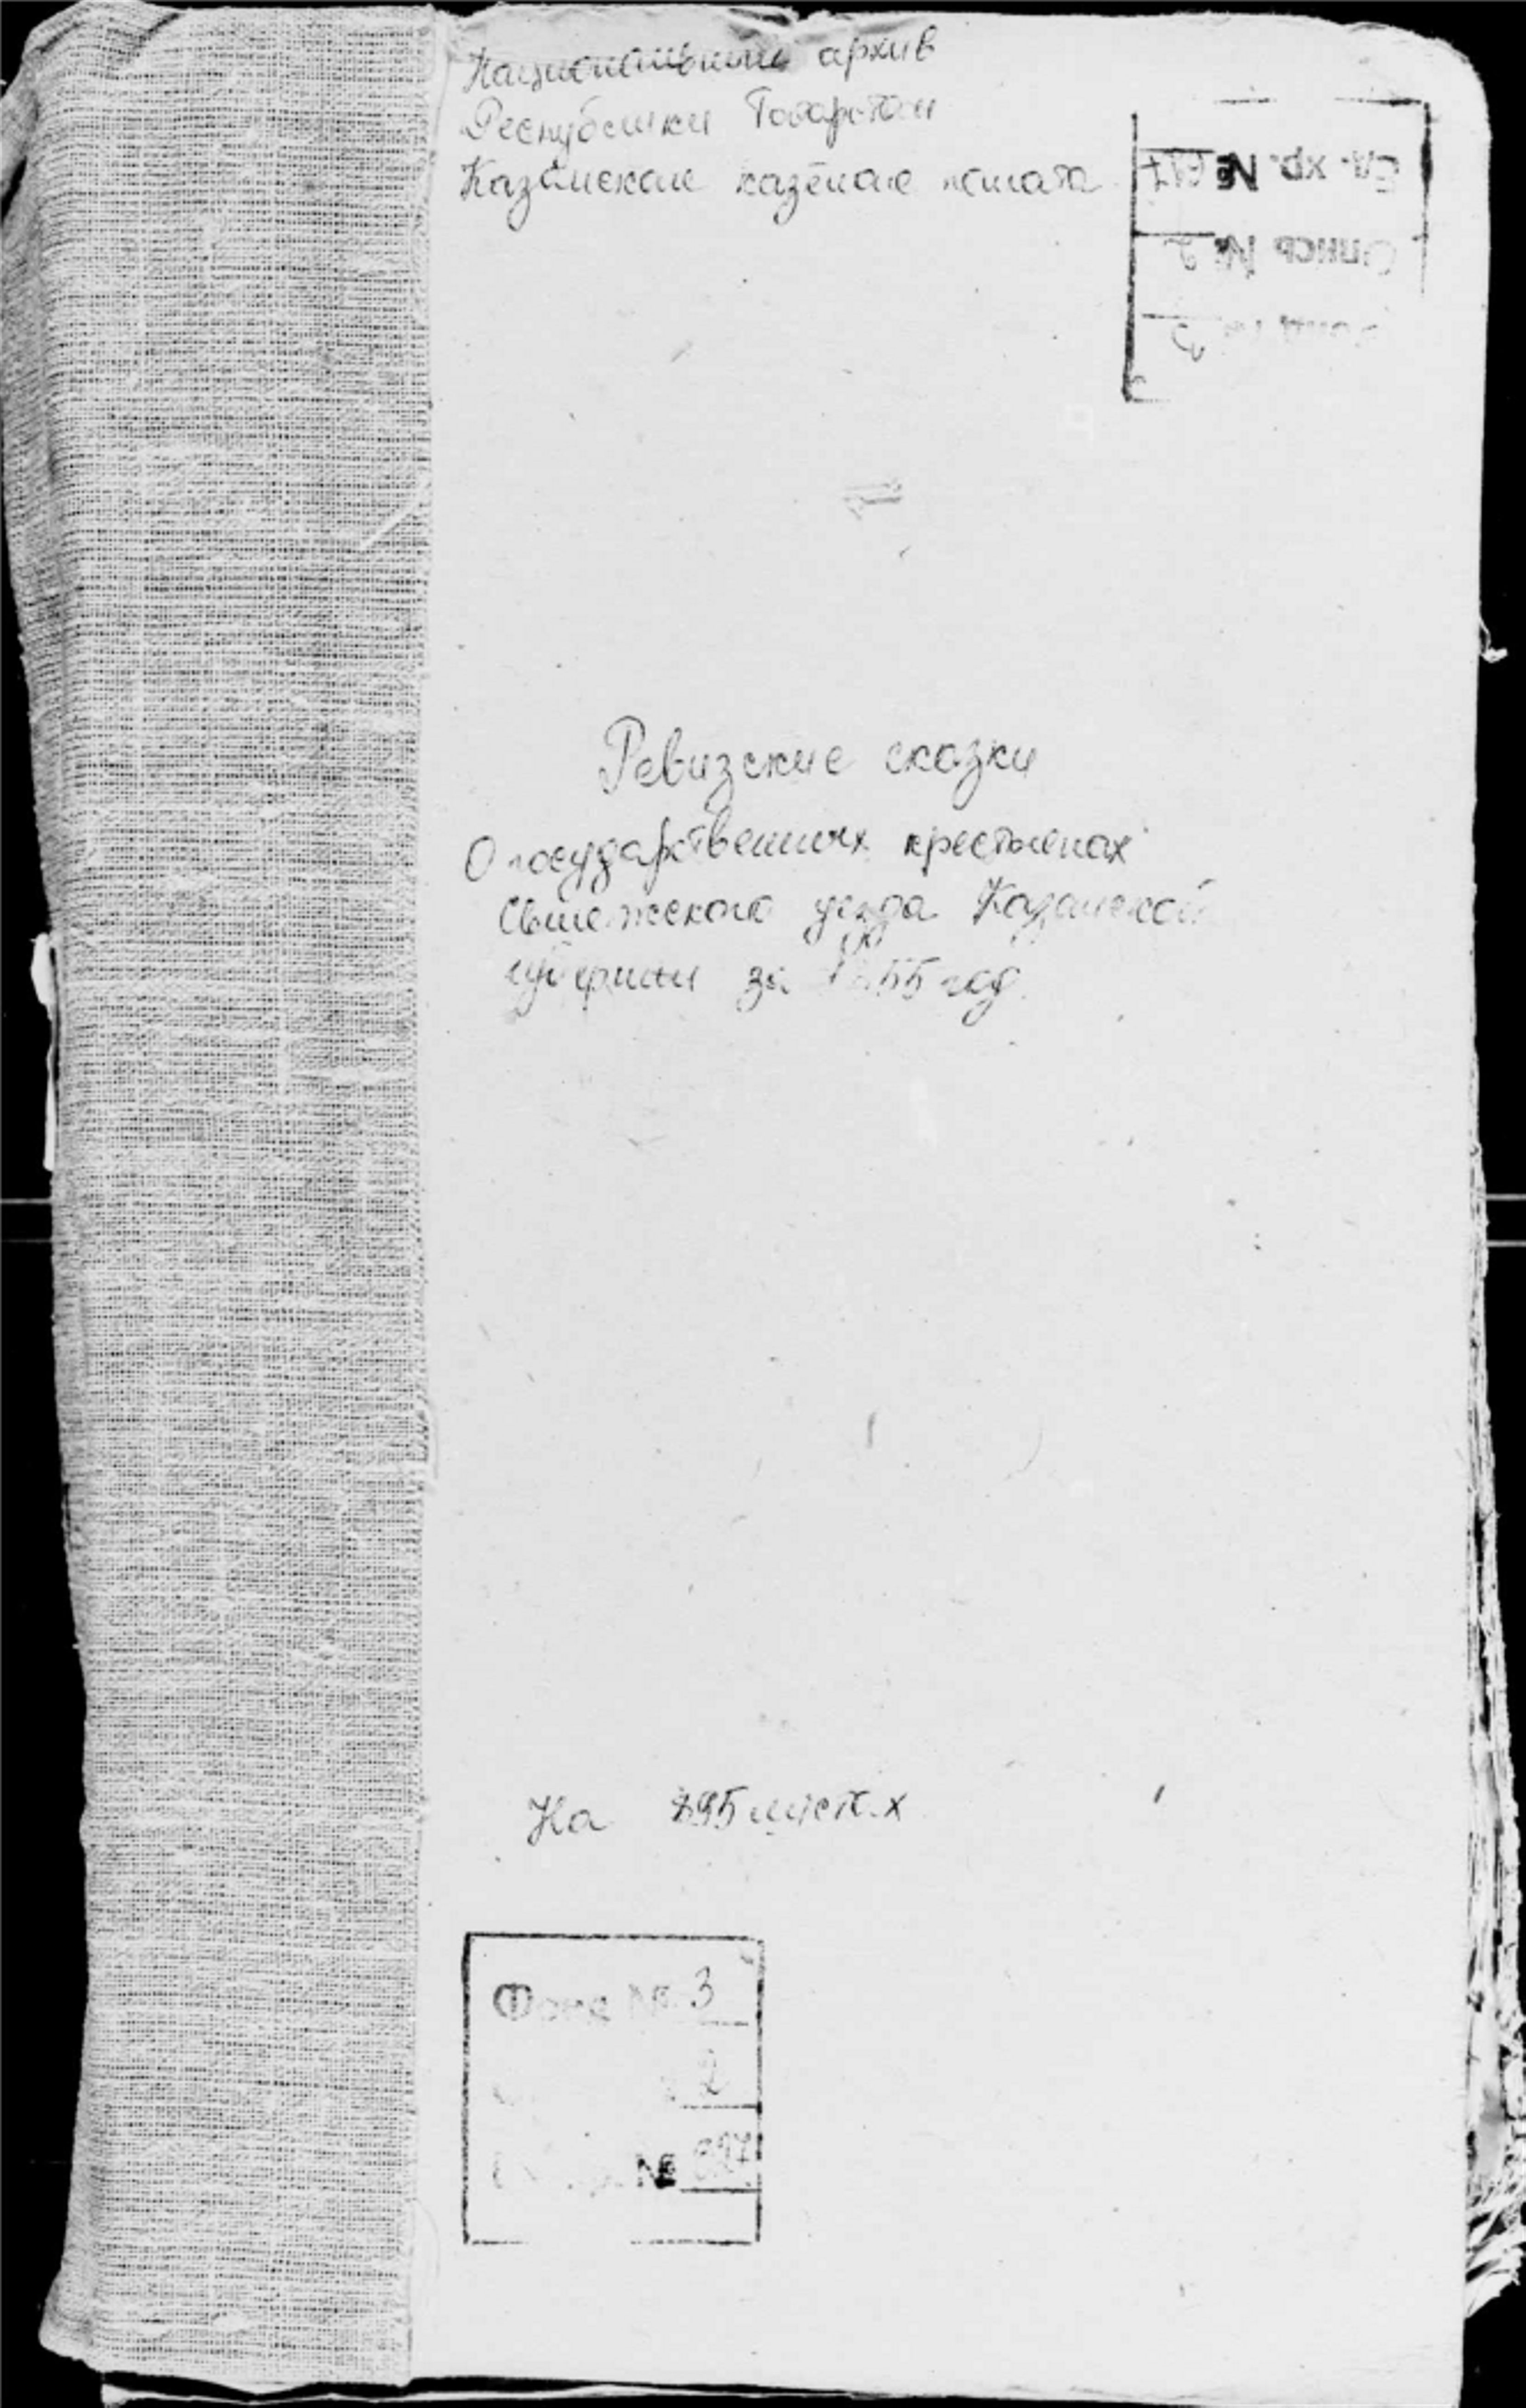 Национальный архив
Республики Татарстан
Казанская казённая палата
Ед. хр. №
Опись № 2
3
Ревизские сказки
О государственных крестьянах
Свияжского уезда Казанской
губернии за 1855 год.
На 895 листах
Фонд № 3
2
№